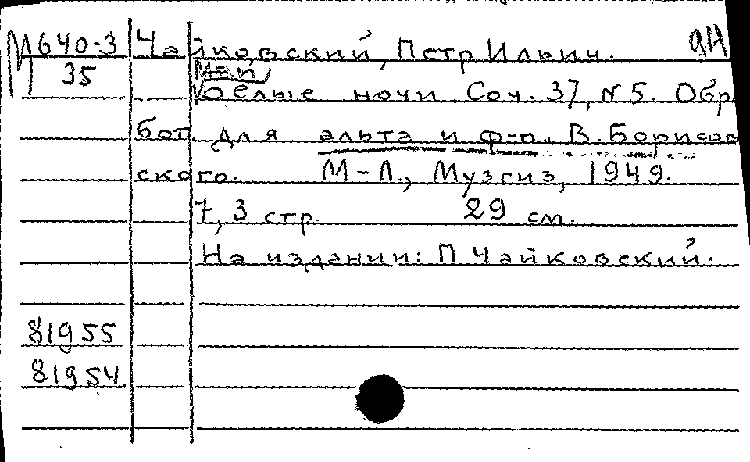 М640-3 Чайковский, Петр Ильич. 9Н
35
Белые ночи. Соч. 37, N 5. Обр
бот. для альта и ф-п. В. Борисов
ского. М-Л., Музгиз, 1949.
7, 3 стр. 29 см.
На издании: П Чайковский.
81955
81954